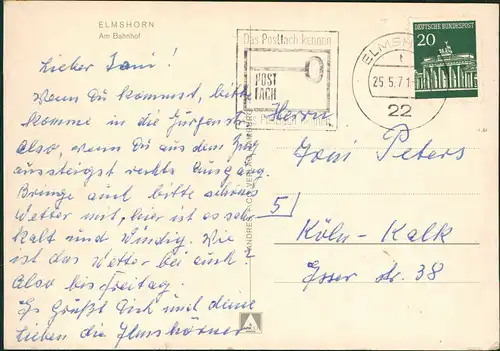 ELMSHORN
Am Bahnhof
Lieber Toni!
Wenn Du kommst, bitte
komme in die Jürgenstr.
Also, wenn Du aus dem Zug
aussteigst rechts Ausgang.
Bringe auch bitte schönes
Wetter mit, hier ist es sehr
kalt und windig. Wie
ist das Wetter bei euch?
Also bis Freitag.
Es grüßt Dich und deine
Lieben die Elmshorner
Das Postfach kennen
POST
FACH
ELMSH
25.5.71
22
DEUTSCHE BUNDESPOST
20
Herrn
Toni Peters
5
Köln-Kalk
Isser str. 38